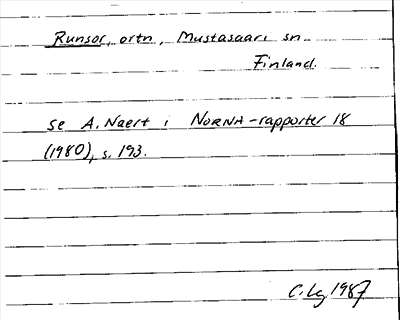 Runsor, ortn, Mustasaari sn
Finland.
se A. Naert i NORNA-rapporter 18
(1980), s. 193.
C. Lg 1987